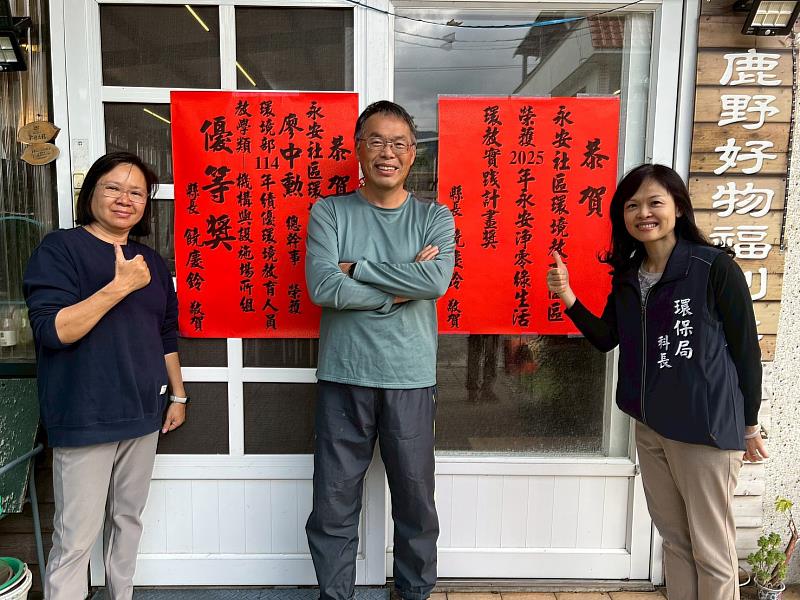 恭賀
永安社區環
廖中勳 總幹事 榮獲
環境部114年績優環境教育人員
教學類 機構與設施場所組
優等獎
縣長 饒慶鈴 敬賀
恭賀
永安社區環教 區
榮獲2025年永安淨零綠生活
環教實踐計畫獎
縣長 饒慶鈴 敬賀
鹿野好物福利
環保局
科長